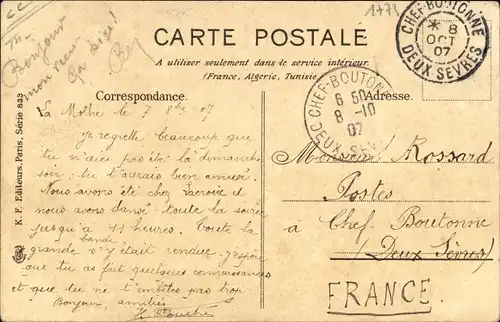 1773
CARTE POSTALE
A utiliser seulement dans le service intérieur
(France, Algérie, Tunisie
Correspondance.
Adresse.
CHEF-BOUTONNE
* 8
OCT
07
DEUX SEVRES
CHEF-BOUTONNE
6 50
8 -10
07
DEUX-SEV
Bonjour
mon vieux
La Mothe le 7 8bre 07
Je regrette beaucoup que
tu n'aies pas été là dimanche
soir; tu t'aurais bien amusé.
Nous avons été chez Lacroix et
nous avons dansé toute la soirée
jusqu'à 11 heures. Toute la
grande bande s'y était rendue. J'espère
que tu as fait quelques connaissances
et que tu ne t'embêtes pas trop
Bonjour, amitiés
Monsieur Rossard
Postes
à Chef Boutonne
(Deux Sèvres)
FRANCE.
K. F. Editeurs, Paris, Série 833